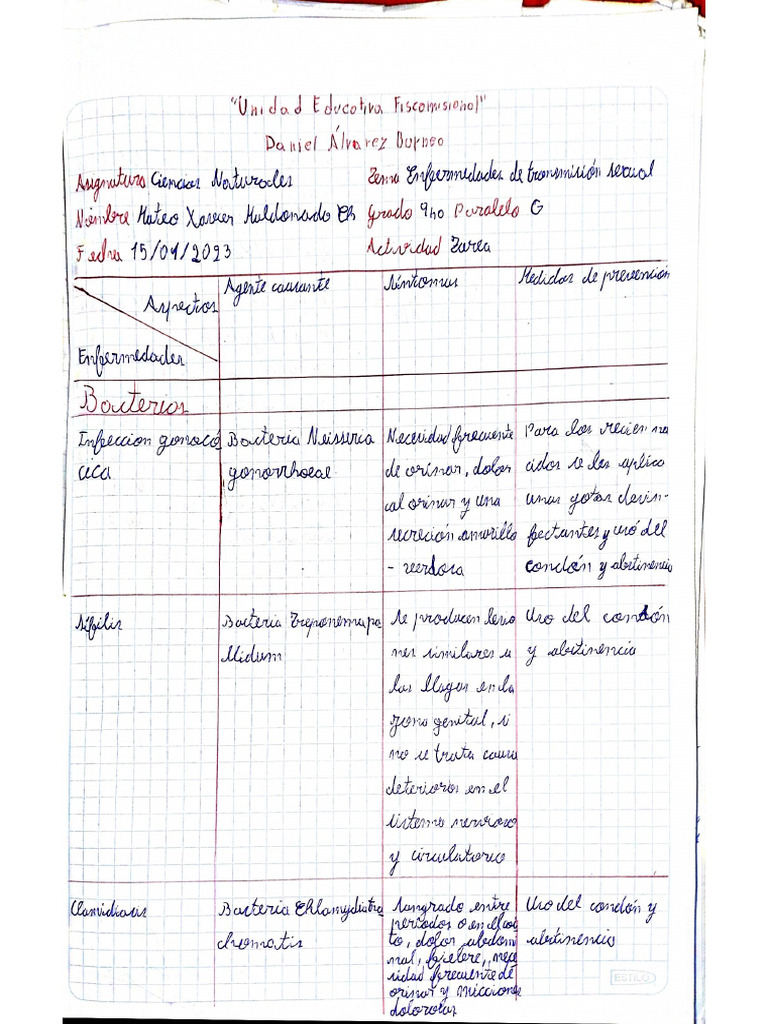 "Unidad Educativa Fiscomisional"
Daniel Álvarez Burneo
Asignatura Ciencias Naturales
Tema Enfermedades de transmisión sexual
Nombre Mateo Xavier Maldonado Ch
Grado 9no Paralelo G
Fecha 15/01/2023
Actividad Tarea
Aspectos
Enfermedades
Agente causante
Síntomas
Medidas de prevención
Bacterias
Infeccion gonocó
cica
Bacteria Neisseria
gonorrhoeae
Necesidad frecuente
de orinar, dolor
al orinar y una
secreción amarillo
- verdosa
Para los recien na
cidos se les aplica
unas gotas desin-
fectantes y uso del
condón y abstinencia
Sífilis
Bacteria Treponema pa
llidum
Se producen lesio
nes similares a
las llagas en la
zona genital, si
no se trata causa
deterioros en el
sistema nervioso
y circulatorio
Uso del condón
y abstinencia
Clamidiasis
Bacteria Chlamydia tra
chomatis
Sangrado entre
periodos o en el coi
to, dolor abdomi
nal, fiebre, nece
sidad frecuente de
orinar y micciones
dolorosas
Uso del condón y
abstinencia
ESTILO